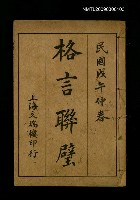 NMTL20090080103
民國戊午仲春
格言聯璧
上海文瑞樓印行